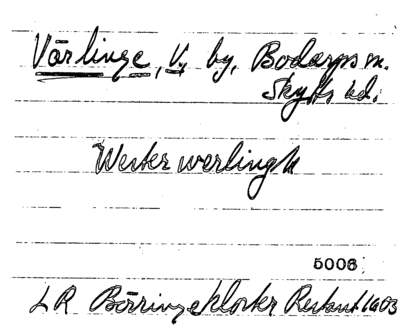 Värlinge, V. by, Bodarps sn.
Skytts hd.
Wester werlingh
5006
LR Börringekloster Restant 1603